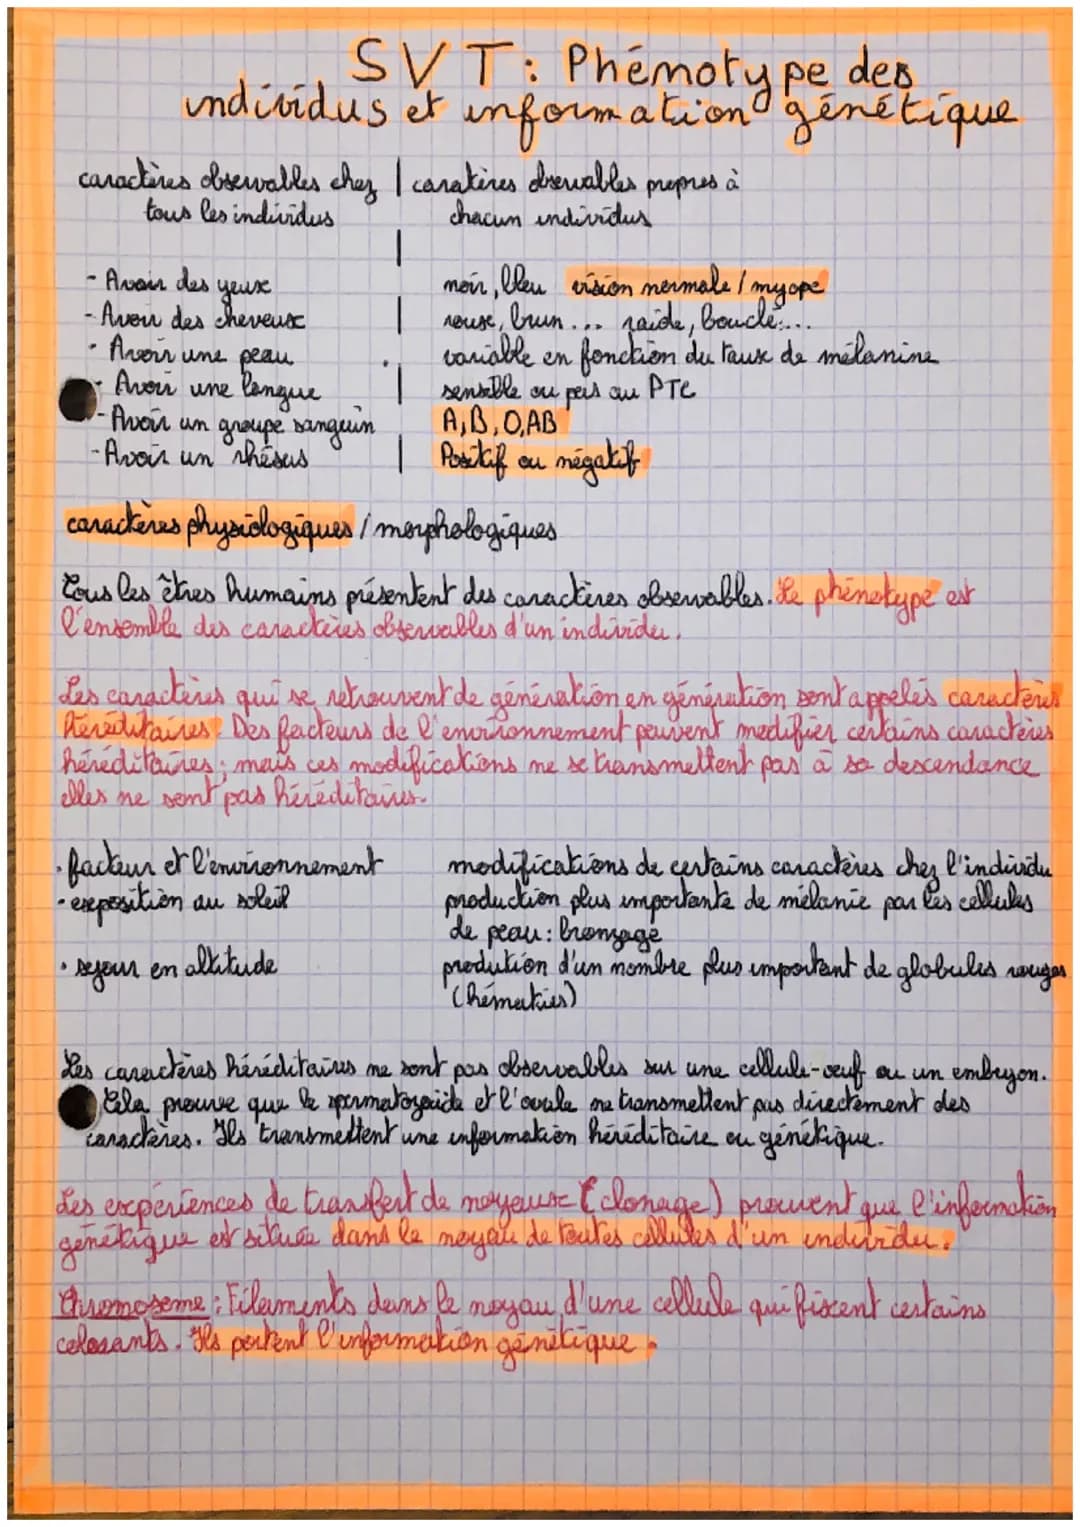 SVT : Phénotype des
individus et information génétique
caractères observables chez | caratères observables propres à
tous les individus chacun individus
- Avoir des yeux noir, bleu vision normale / myope
- Avoir des cheveux rouse, brun... raide, bouclé....
- Avoir une peau variable en fonction du taux de mélanine
- Avoir une langue sensible ou pas au PTC
- Avoir un groupe sanguin A, B, O, AB
- Avoir un rhésus Positif ou négatif
caractères physiologiques / morphologiques
Tous les êtres humains présentent des caractères observables. Le phénotype est
l'ensemble des caractères observables d'un individu.
Les caractères qui se retrouvent de génération en génération sont appelés caractères
héréditaires. Des facteurs de l'environnement peuvent modifier certains caractères
héréditaires ; mais ces modifications ne se transmettent pas à sa descendance
elles ne sont pas héréditaires.
. facteur et l'environnement modifications de certains caractères chez l'individu
- exposition au soleil production plus importante de mélanie par les cellules
de peau : bronzage
. sejour en altitude prodution d'un nombre plus important de globules rouges
(hématies)
Les caractères héréditaires ne sont pas observables sur une cellule-oeuf ou un embryon.
Cela prouve que le spermatozoïde et l'ovule ne transmettent pas directement des
caractères. Ils transmettent une information héréditaire ou génétique.
Les expériences de transfert de noyaux (clonage) prouvent que l'information
génétique est située dans le noyau de toutes cellules d'un individu.
Chromosome : Filaments dans le noyau d'une cellule qui fixent certains
colosants. Ils portent l'information génétique.